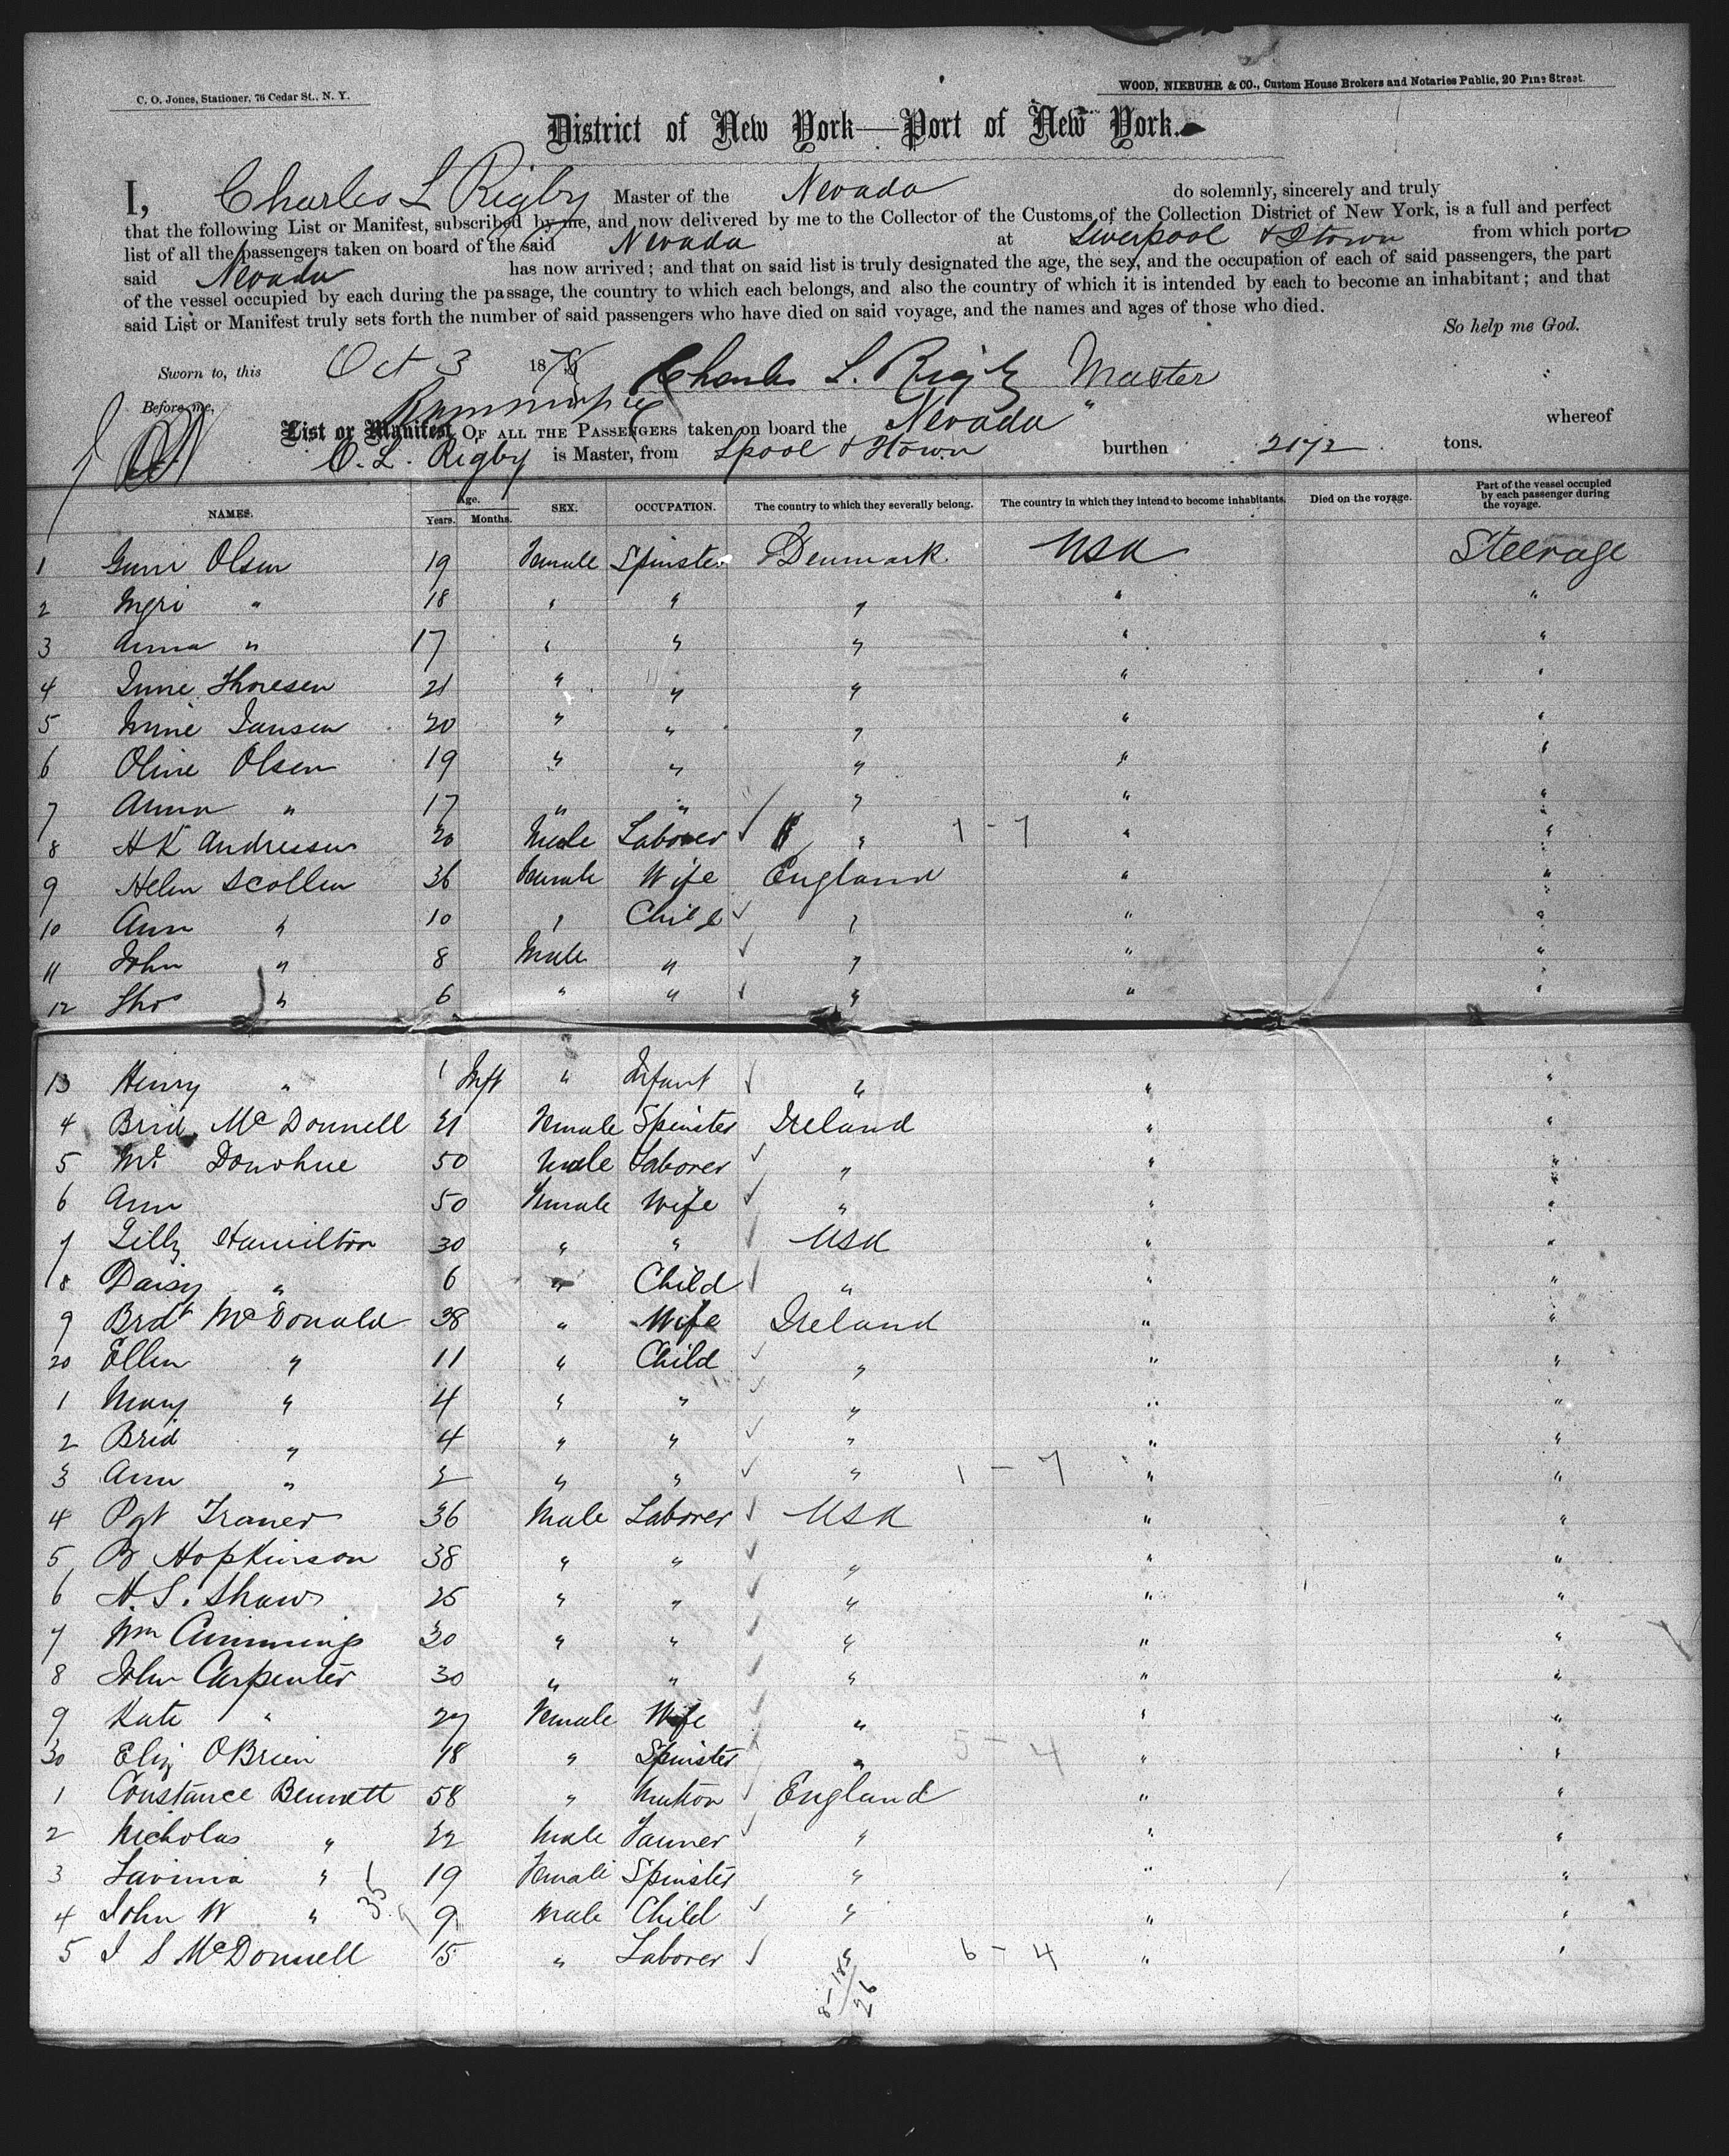 C. O. Jones, Stationer, 76 Cedar St., N. Y.
WOOD, NIEBUHR & CO., Custom House Brokers and Notaries Public, 20 Pine Street.
District of New York—Port of New York.
I, Charles L Rigby Master of the Nevada do solemnly, sincerely and truly
that the following List or Manifest, subscribed by me, and now delivered by me to the Collector of the Customs of the Collection District of New York, is a full and perfect
list of all the passengers taken on board of the said Nevada at Liverpool & Qtown from which ports
said Nevada has now arrived; and that on said list is truly designated the age, the sex, and the occupation of each of said passengers, the part
of the vessel occupied by each during the passage, the country to which each belongs, and also the country of which it is intended by each to become an inhabitant; and that
said List or Manifest truly sets forth the number of said passengers who have died on said voyage, and the names and ages of those who died.
So help me God.
Sworn to, this Oct 3 1878 Charles L. Rigby Master
Before me,
List or Manifest OF ALL THE PASSENGERS taken on board the Nevada whereof
C. L. Rigby is Master, from Lpool & Qtown burthen 2172 tons.
NAMES. Age. Years. Months. SEX. OCCUPATION. The country to which they severally belong. The country in which they intend to become inhabitants. Died on the voyage. Part of the vessel occupied by each passenger during the voyage.
1 Olsen 19 Female Spinster Denmark USA Steerage
2 Ingri " 18 " " " " "
3 Anna " 17 " " " " "
4 Thoresen 21 " " " " "
5 Jansen 20 " " " " "
6 Oline Olsen 19 " " " " "
7 Anna " 17 " " " " "
8 H K Andressen 20 Male Laborer " 1 - 7 " "
9 Helen Scollen 36 Female Wife England " "
10 Ann " 10 " Child " " "
11 John " 8 Male " " " "
12 Thos " 6 " " " " "
13 Henry " 1 Inft " Infant " " "
4 Brid McDonnell 21 Female Spinster Ireland " "
5 Donohue 50 Male Laborer " " "
6 Ann 50 Female Wife " " "
7 Lilly Hamilton 30 " " USA " "
18 Daisy " 6 " Child " " "
9 Brdt McDonald 38 " Wife Ireland " "
20 Ellen " 11 " Child " " "
1 Mary " 4 " " " " "
2 Brid " 4 " " " " "
3 Ann " 2 " " " 1 - 7 " "
4 Pat Traner 36 Male Laborer USA " "
5 B Hopkinson 38 " " " " "
6 H. S. Shaw 25 " " " " "
7 Wm Cummings 30 " " " " "
8 John Carpenter 30 " " " " "
9 Kate " 27 Female Wife " " "
30 Eliz OBrien 18 " Spinster " 5 - 4 " "
1 Constance Bennett 58 " Matron England " "
2 Nicholas " 22 Male Farmer " " "
3 Lavinia " 19 Female Spinster " " "
4 John W " 35 9 Male Child " " "
5 J S McDonnell 15 " Laborer " 6 - 4 " "